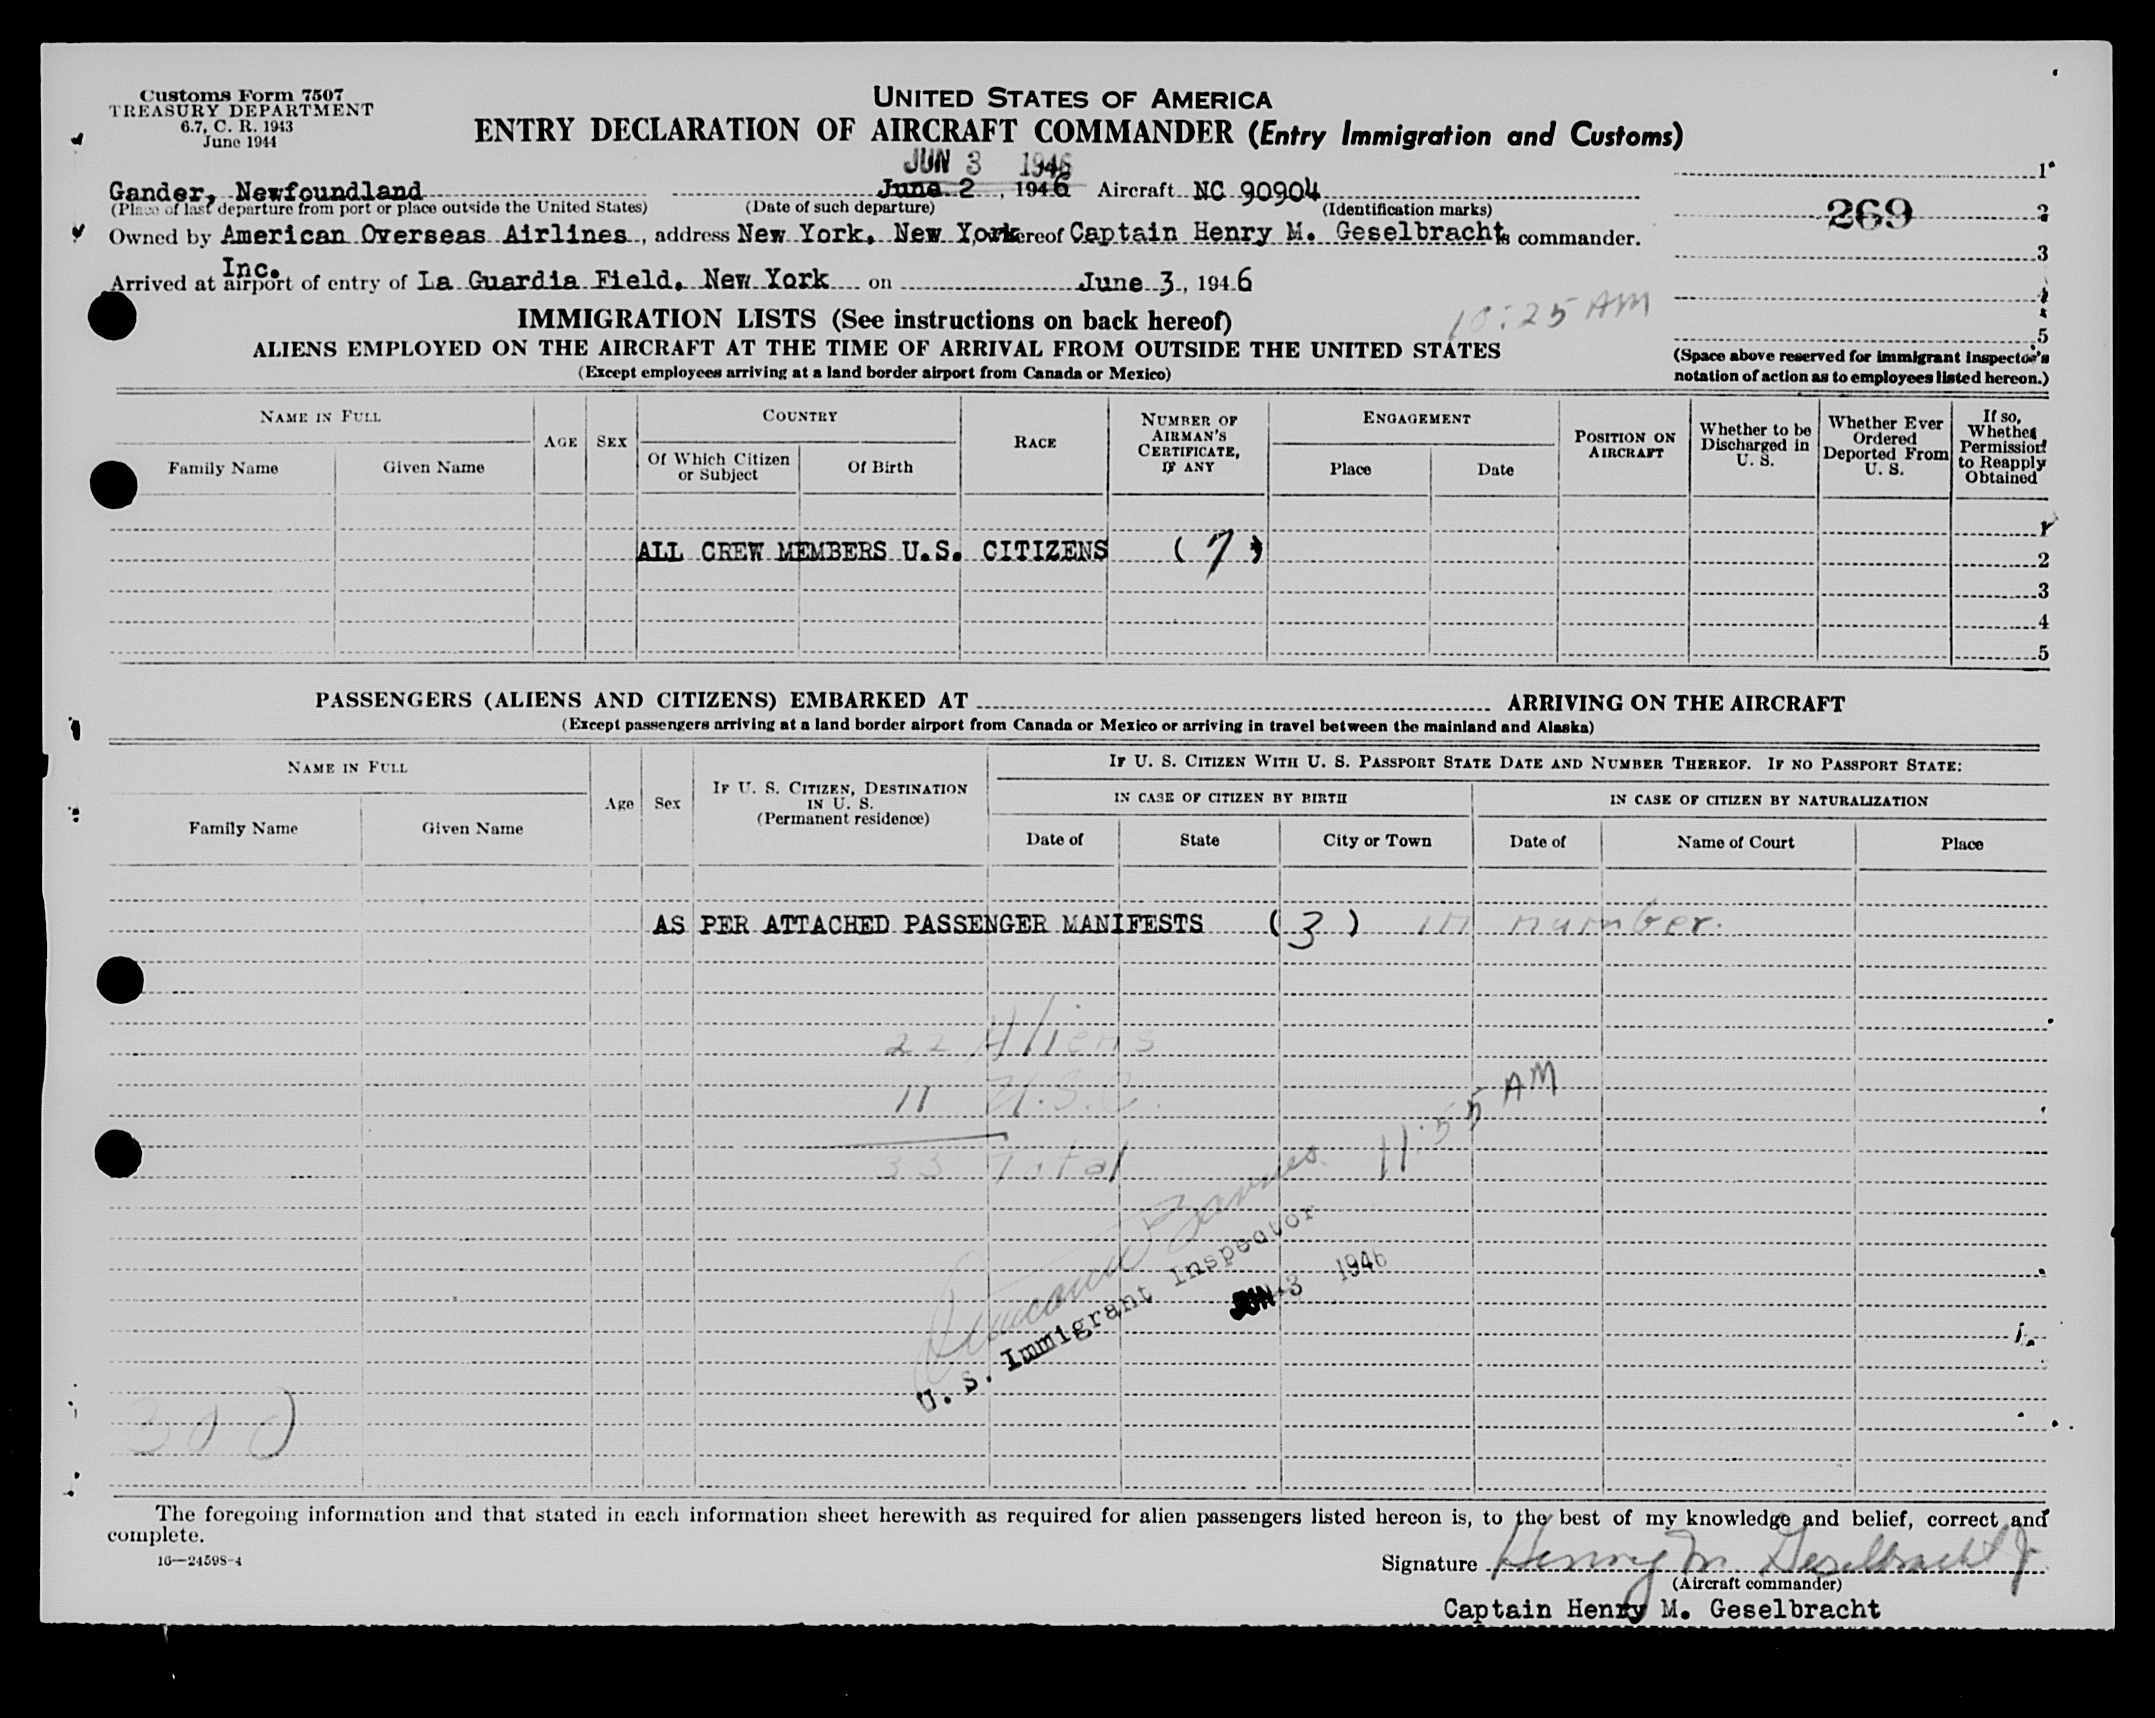 Customs Form 7507
TREASURY DEPARTMENT
6.7, C. R. 1943
June 1944
UNITED STATES OF AMERICA
ENTRY DECLARATION OF AIRCRAFT COMMANDER (Entry Immigration and Customs)
JUN 3 1946
Gander, Newfoundland June 2, 1946 Aircraft NC 90904
(Place of last departure from port or place outside the United States) (Date of such departure) (Identification marks)
269
Owned by American Overseas Airlines, address New York, New York, whereof Captain Henry M. Geselbracht is commander.
Inc.
Arrived at airport of entry of La Guardia Field, New York on June 3, 1946
10:25 AM
1
2
3
4
5
(Space above reserved for immigrant inspector's
notation of action as to employees listed hereon.)
IMMIGRATION LISTS (See instructions on back hereof)
ALIENS EMPLOYED ON THE AIRCRAFT AT THE TIME OF ARRIVAL FROM OUTSIDE THE UNITED STATES
(Except employees arriving at a land border airport from Canada or Mexico)
NAME IN FULL
Family Name
Given Name
AGE
SEX
COUNTRY
Of Which Citizen
or Subject
Of Birth
RACE
NUMBER OF
AIRMAN'S
CERTIFICATE,
IF ANY
ENGAGEMENT
Place
Date
POSITION ON
AIRCRAFT
Whether to be
Discharged in
U. S.
Whether Ever
Ordered
Deported From
U. S.
If so,
Whether
Permission
to Reapply
Obtained
1
ALL CREW MEMBERS U.S. CITIZENS (7) 2
3
4
5
PASSENGERS (ALIENS AND CITIZENS) EMBARKED AT ARRIVING ON THE AIRCRAFT
(Except passengers arriving at a land border airport from Canada or Mexico or arriving in travel between the mainland and Alaska)
NAME IN FULL
Family Name
Given Name
Age
Sex
IF U. S. CITIZEN, DESTINATION
IN U. S.
(Permanent residence)
IF U. S. CITIZEN WITH U. S. PASSPORT STATE DATE AND NUMBER THEREOF. IF NO PASSPORT STATE:
IN CASE OF CITIZEN BY BIRTH
IN CASE OF CITIZEN BY NATURALIZATION
Date of
State
City or Town
Date of
Name of Court
Place
AS PER ATTACHED PASSENGER MANIFESTS (3) in number.
22 Aliens
11 U.S.C.
33 Total
11:55 AM
U. S. Immigrant Inspector
JUN 3 1946
300
The foregoing information and that stated in each information sheet herewith as required for alien passengers listed hereon is, to the best of my knowledge and belief, correct and
complete.
16—24598-4
Signature Henry M Geselbracht Jr
(Aircraft commander)
Captain Henry M. Geselbracht